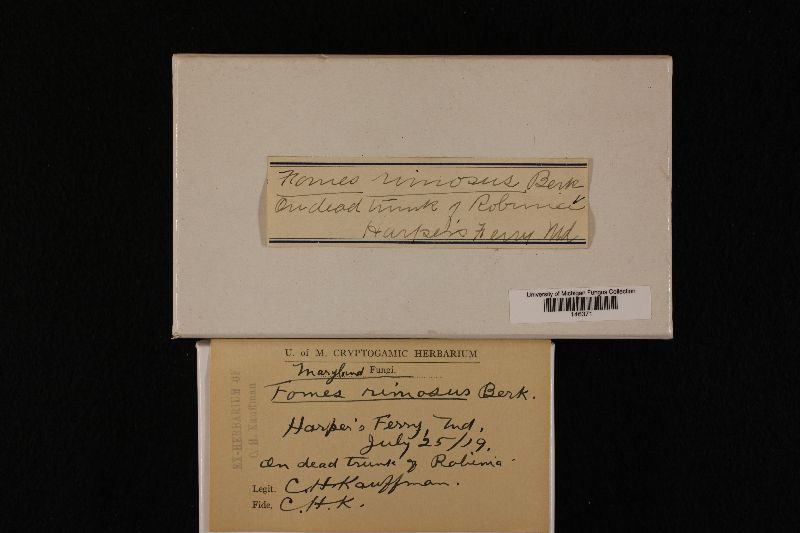 Fomes rimosus Berk
On dead trunk of Robinia
Harper's Ferry Md
University of Michigan Fungus Collection
146371
U. of M. CRYPTOGAMIC HERBARIUM
Maryland Fungi.
Fomes rimosus Berk.
Harper's Ferry, Md,
July 25/19.
On dead trunk of Robinia
Legit. C.H. Kauffman.
Fide. C.H.K.
EX-HERBARIUM OF
C. H. Kauffman